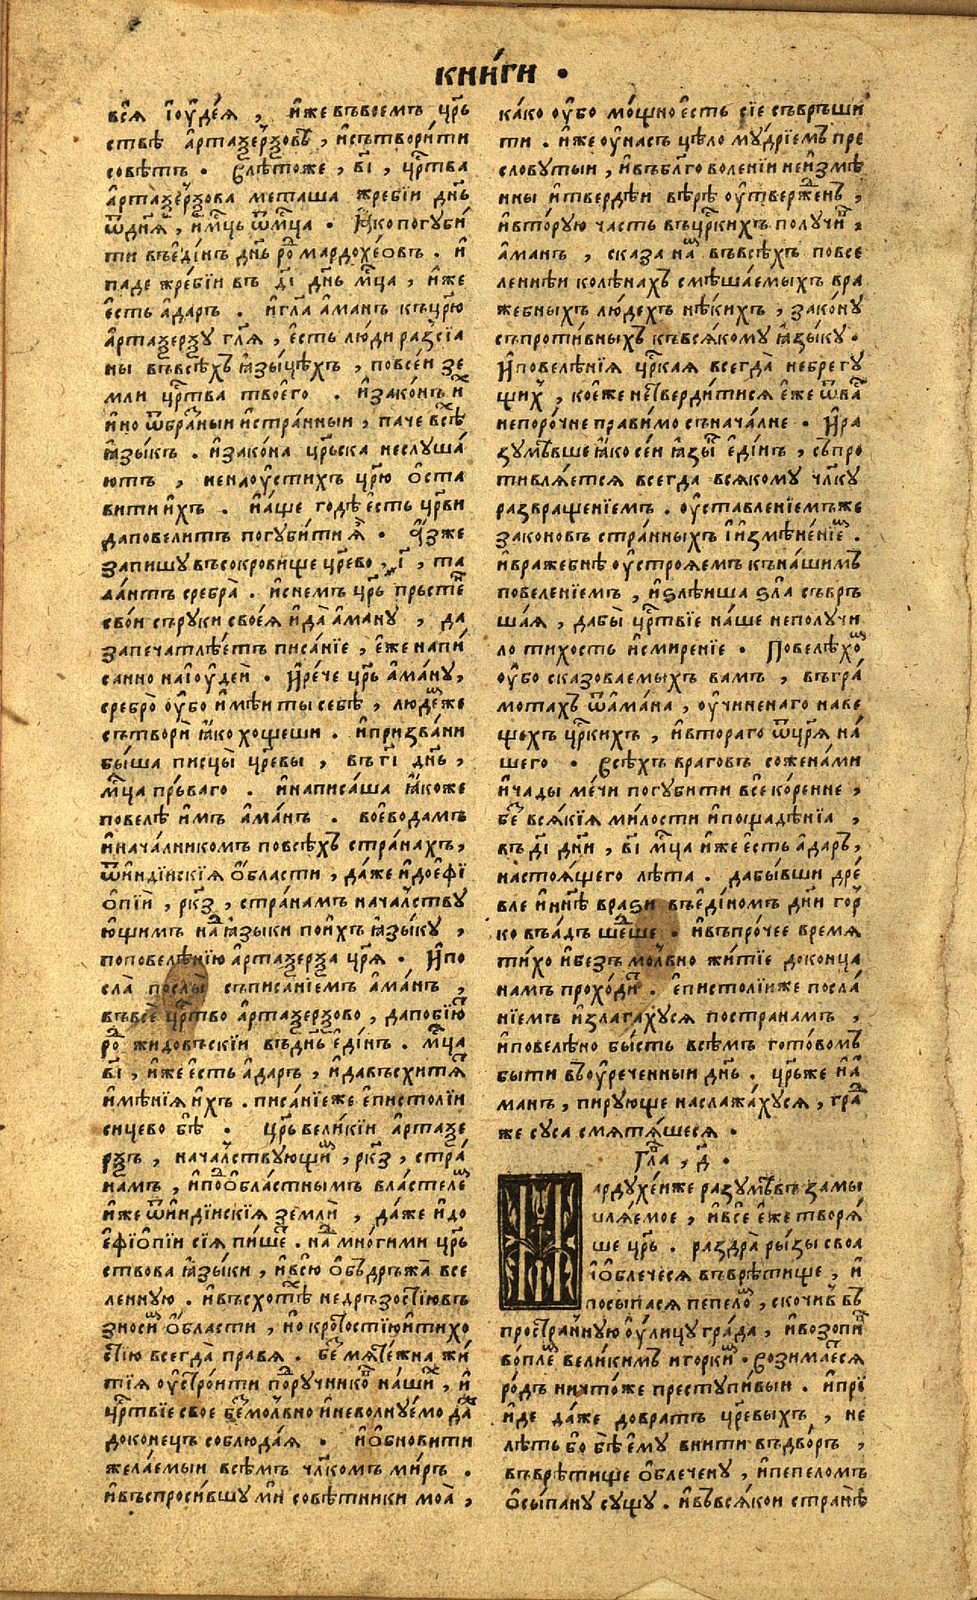 кни́ги .
всѧ̀ і҆ꙋде́ѧ , и҆́же въвоемъ црⷭ҇ь
ствѣ а҆ртаѯе́рѯовѣ , и҆сътвори́ти
совѣ́тъ . Влѣ́тоже , в҃і , црⷭ҇тва
а҆ртаѯе́рѯова меташа жребїи днь҃
ѿднѧ̀ , и҆мцⷭ҇ь ѿмцⷭ҇а . Ꙗ҆́ко погꙋби́
ти въе҆ди́нъ днь҃ роⷣ мардохе́овъ . и҆
паде жре́бїи въ д҃і днь҃ мцⷭ҇а , и҆́же
е҆́сть а҆да́ръ . и҆гл҃а а҆ма́нъ къцр҃ю
а҆ртаѯе́рѯꙋ гл҃ѧ , е҆́сть лю́ди раз̾сїа
ны въвсѣ́хъ ꙗ҆зы́цѣхъ , повсе́и зе
мли црⷭ҇тва твоего̀ . и҆зако́нъ и҆ⷯ
и҆́но ѿбра́нныи и҆стра́нныи , паче всѣⷯ
ꙗ҆зы́къ . и҆зако́на црⷭ҇ьска неслꙋша́
ютъ , ненаꙋ҆́стихъ цр҃ю ѡ҆ста
вити и҆́хъ . и҆а́ще годѣ̀ е҆́сть цр҃ви
даповели́тъ погꙋби́ти ѧ҆̀ . А҆́зже
запишꙋ̀ въсокро́вище цр҃ево , ҂і҃ , та
ла́нтъ сребра̀ . и҆сне́мъ цр҃ь пръстеⷩ
свои съ рꙋки своеѧ̀ и҆да̀ а҆ма́нꙋ , да
запечатлѣ́етъ писа́нїе , е҆́же напи́
санно наі҆ꙋде́и . И҆рече цр҃ь а҆ма́нꙋ,
сребро̀ ᲂу҆́бо и҆мѣ́и ты себѣ̀ , людеⷨже
сътвори̑ ꙗ҆́ко хощеши . и҆призва́ни
бы́ша писцы̀ цр҃евы , въ г҃і днь҃ ,
мцⷭ҇а пръ́ваго . и҆написа́ша ꙗ҆́коже
повелѣ̀ и҆́мъ а҆ма́нъ . воево́дамъ
и҆нача́лникомъ повсѣ́хъ стра́нахъ,
ѿи҆ндїискїѧ ѻ҆́бласти , да́же и҆дое҆ѳїо҆пїи , рк҃з , стра́намъ нача́лствꙋ
ю́щимъ наⷣ ꙗ҆зы́ки пои҆́хъ ꙗ҆зы́кꙋ ,
поповелѣ́нїю а҆ртаѯе́рѯа цр҃ѧ . И҆по
сла̀ послы̀ съписа́нїемъ а҆ма́нъ ,
въвсе црⷭ҇тво а҆ртаѯе́рѯово , дапобїю́ⷮ
роⷣ жидовъскїи въднь҃ е҆ди́нъ . мцⷭ҇а
в҃і , и҆́же е҆́сть а҆да́ръ , и҆давъсхитѧⷮ
и҆мѣ́нїѧ и҆́хъ . писа́нїеже е҆писто́лїи
сицево бѣ̀ . цр҃ь вели́кїи а҆ртаѯе
рѯъ , нача́лствꙋющиⷨ , рк҃з , стра́
намъ , и҆поⷣѻ҆бла́стнымъ власте́леⷨ
и҆́же ѿи҆ндїискїѧ земли̑ , да́же и҆до
е҆ѳїо҆пїи сїѧ пи́шеⷮ . наⷣ мно́гими црⷭ҇ь
ствова ꙗ҆зы́ки , и҆всю̀ ѻ҆б̾дръжа̀ все
ленꙋю . и҆въсхотѣⷯ недръ́зостїювъ
зносиⷮ ѻ҆́бласти , но кро́тостїюи҆тихо
стїю всегда̀ правѧ . беⷥ мѧте́жна жи́
тїѧ ᲂу҆стро́ити поⷣрꙋчникоⷨ на́шиⷨ , и҆
црⷭ҇твїе свое беⷥмо́лвно и҆неволнꙋ́емо даⷤ
доконецъ соблюда́ѧ . и҆ѻ҆бнови́ти
жела́емыи всѣ́мъ чл҃комъ ми́ръ .
и҆въспроси́вшꙋ мѝ совѣ́тники моѧ̀ ,
ка́ко ᲂу҆́бо мо́щно е҆́сть сїе съвръши
ти . и҆́же ᲂу҆на́съ цѣ́ло мꙋ́дрїемъ пре
слову́тыи , и҆въбл҃говоле́нїи неи҆змѣ́
нны и҆твердѣ́и вѣ́рѣ ᲂу҆тверже́нъ ,
и҆вторꙋю часть въцрⷭ҇кихъ получиⷡ ,
а҆ма́нъ , сказа наⷨ въвсѣ́хъ повсе
ленне́и колѣ́нахъ смѣша́емыхъ вра
же́бныхъ лю́дехъ нѣ́кихъ , зако́нꙋ
съпроти́вныхъ къвсѧ́комꙋ ꙗ҆зы́кꙋ .
И҆повелѣ́нїѧ црⷭ҇каѧ всегда̀ небрегꙋ́
щиⷯ , коеже нетвердитисѧ е҆́же ѿваⷭ
непоро́чне пра́вимо съначалне . И҆ра
зꙋмѣ́вше ꙗ҆́ко се́и ꙗ҆зыⷦ҇ е҆ди́нъ , съпро
тивлѧ́етсѧ всегда всѧкомꙋ чл҃кꙋ
развраще́нїемъ . ᲂу҆ставле́нїемъже
зако́новъ стра́нныхъ і҆и҆змѣне́нїеⷨ .
и҆вражебнѣ ᲂу҆строѧ́емъ къна́шимъ
повеле́нїемъ , и҆ѕлѣ́иша ѕла̀ съвръ
ша́ѧ , дабы̀ црⷭ҇твїе на́ше неполучи
ло ти́хость и҆смире́нїе . Повелѣ́хоⷨ
ᲂу҆́бо сказоваемыхъ ва́мъ , въ гра́
мотахъ ѿа҆ма́на , ᲂу҆чиненаго наве
щехъ црⷭ҇кихъ , и҆втораго ѿцр҃ѧ на́
шего . Всѣ́хъ врагов̾ соженами
и҆чады ме́чи погꙋбити все ко́ренне ,
беⷥ всѧ́кїѧ ми́лости и҆пощадѣ́нїа ,
въ д҃і днѝ , в҃і мцⷭ҇а и҆́же е҆́сть а҆да́ръ,
настоѧ́щего лѣ́та . дабы́вши дре́
вле и҆ны́нѣ врази̑ въе҆ди́номъ дни́ гор
ко въа҆́дъ шеⷣше . и҆въпро́чее времѧ
ти́хо и҆безъ мо́лвно жи́тїе доконца
намъ проходиⷨ . е҆писто́лїиже посла́
нїемъ и҆злага́хꙋсѧ постранамъ ,
и҆повелѣ́но бы́сть всѣ́мъ гото́вомъ
быти въᲂу҆рече́нныи днь҃ . цр҃ьже и҆а҆
ма́нъ , пирꙋ́юще наслажа́хꙋсѧ , граⷣ
же сꙋ́са смѧтѧ́шесѧ .
Гл҃а , д҃ .
ардꙋхе́иже разꙋмѣ́въ замы
шлѧ́емое , и҆все е҆́же творѧ́
ше цр҃ь . раздра̀ ри́зы своа
і҆ѻ҆блече́сѧ въврѣ́тище , и҆
посы́пасѧ пе́пелоⷨ , скочи́въ въ
простра́ннꙋю ᲂу҆́лицꙋ гра́да , и҆возопиⷡ
во́плеⷨ вели́кимъ и горкиⷨ . возимлетсѧ
ро́дъ ничто́же престꙋпи́выи . и҆прі
и҆́де да́же до вра́тъ цр҃евыхъ , не
лѣ́ть бо бѣ̀ е҆мꙋ̀ вни́ти въдво́ръ ,
въврѣ́тище ѻ҆блеченꙋ , и҆пе́пеломъ
ѻ҆сы́панꙋ сꙋщꙋ . и҆въвсѧ́кои странѣ̀